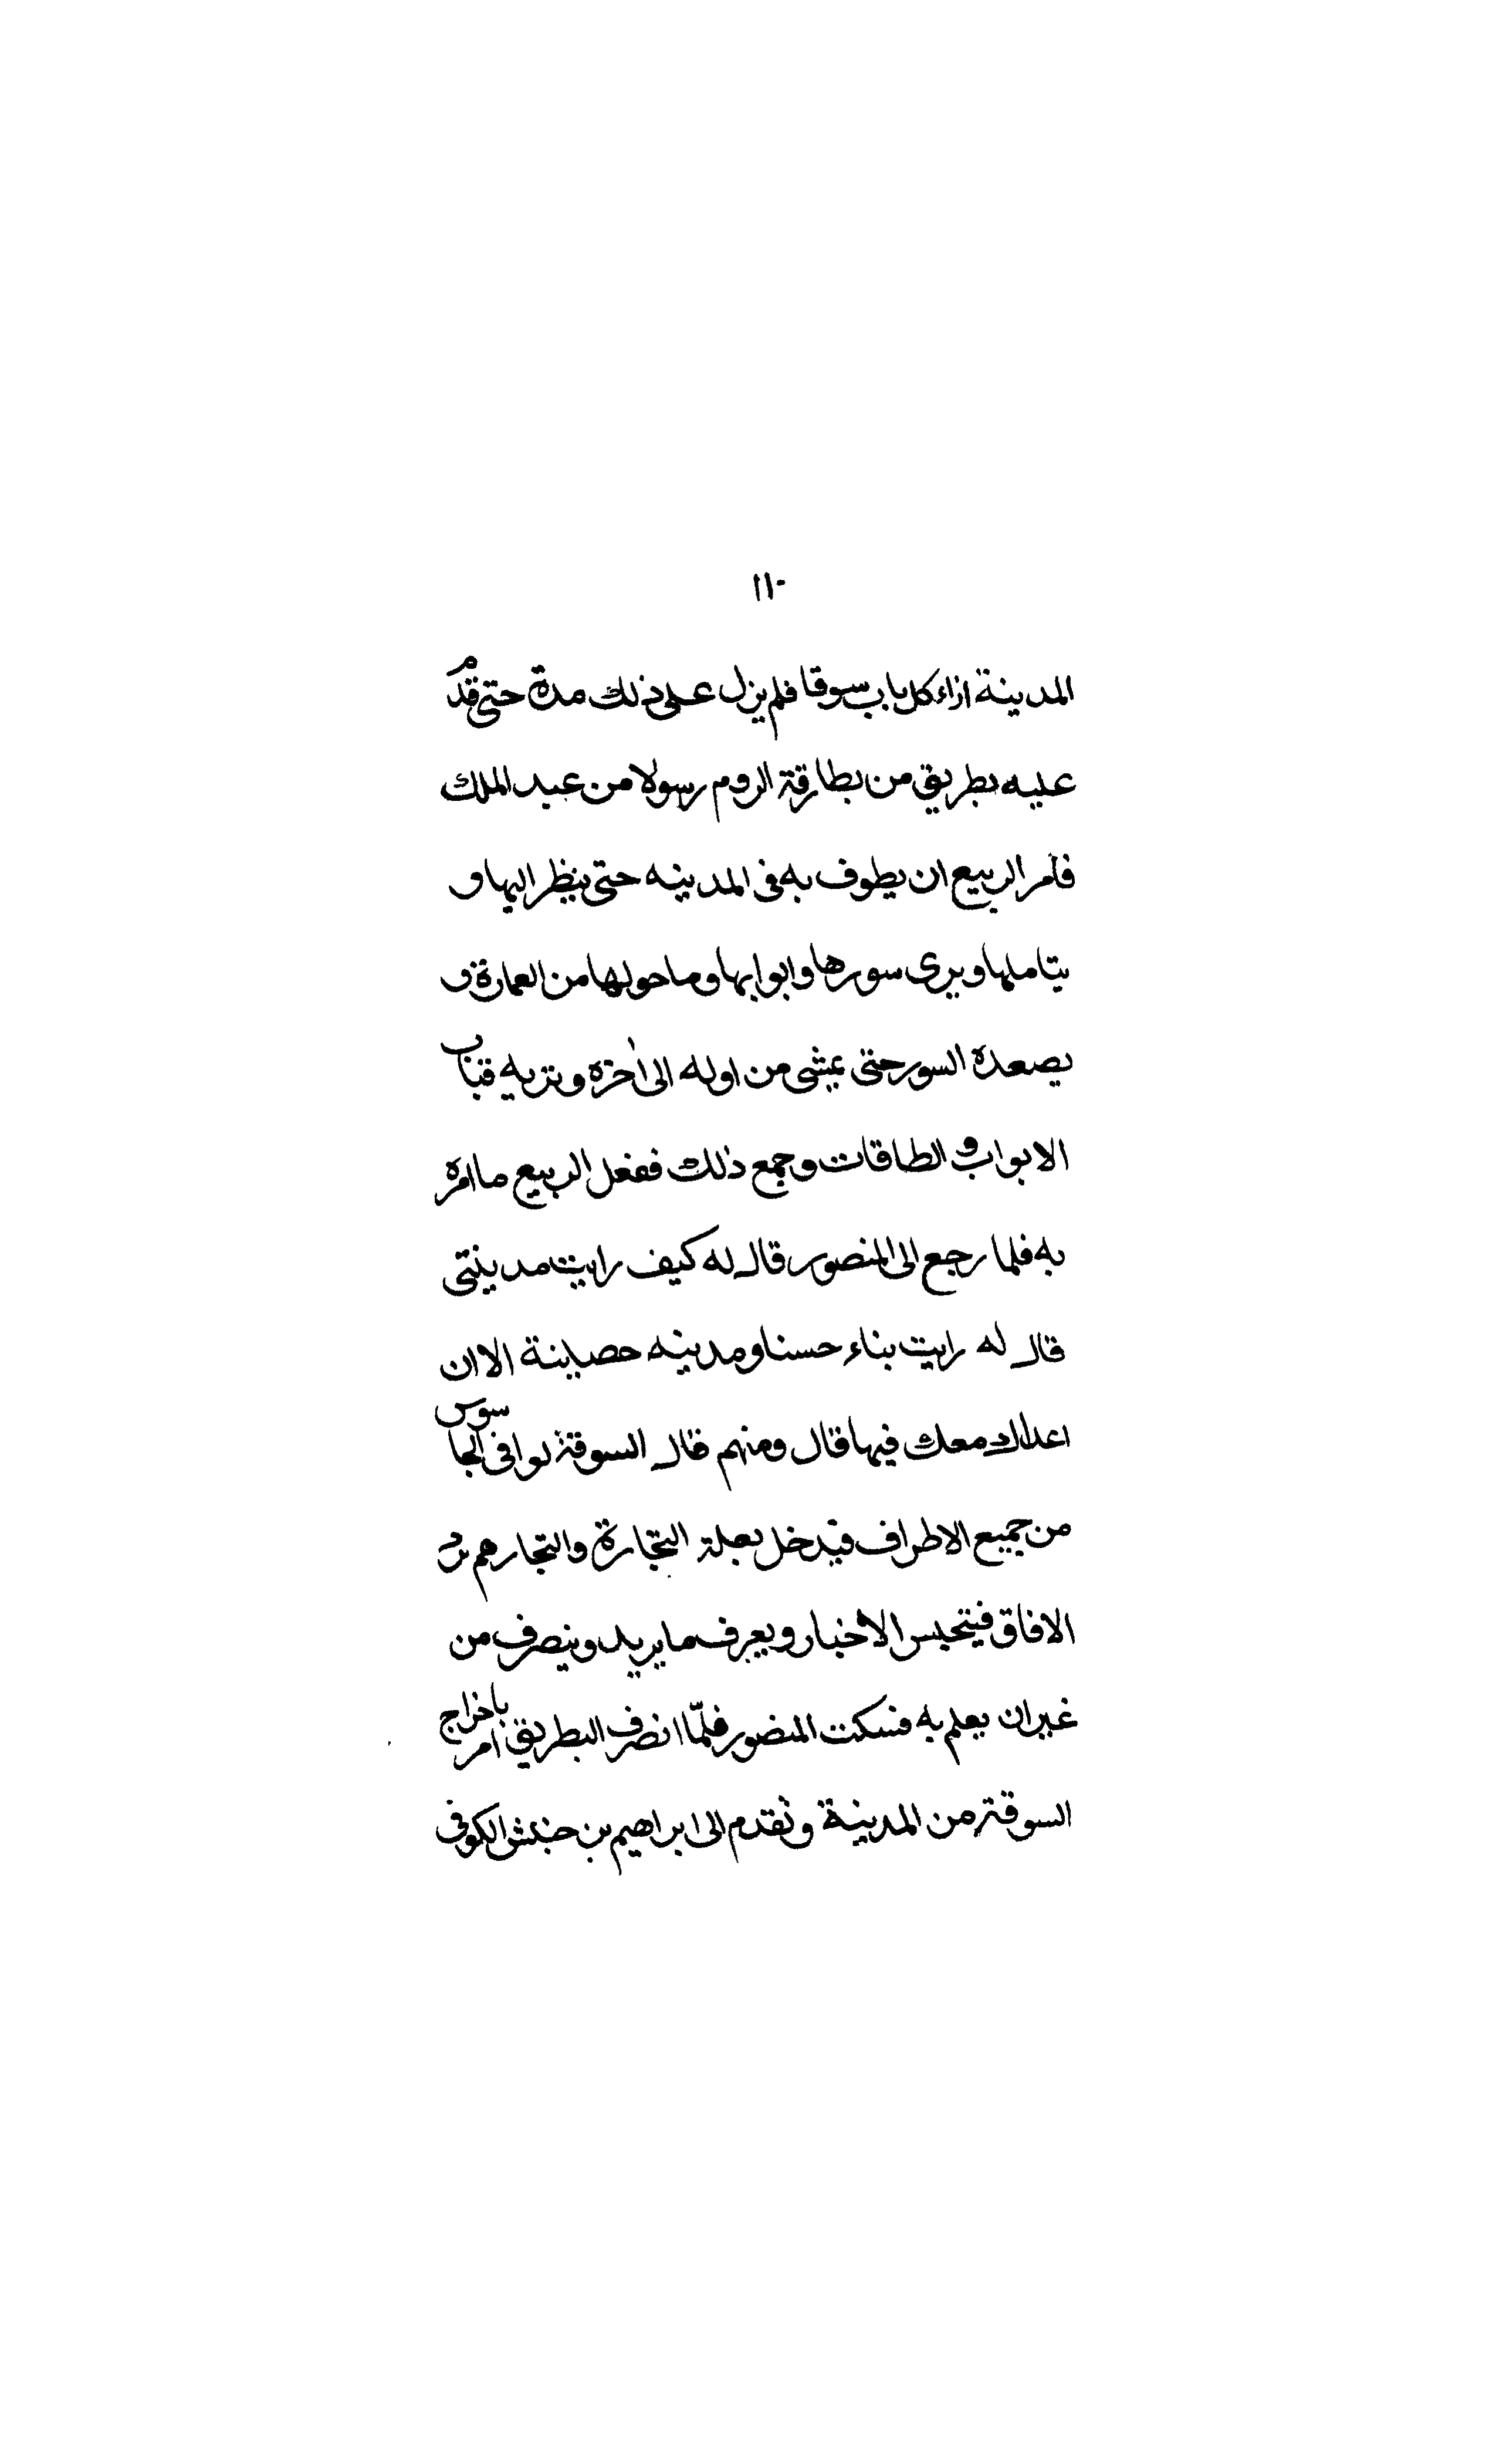 ١١٠
المدينة ازاء كل باب سوقا فلم يزل على ذلك مدة حتى قدم
عليه بطريق من بطارقة الروم رسولا من عبد الملك
فامر الربيع ان يطوف به فى المدينه حتى ينظر اليها و
يتاملها ويرى سورها وابوابها وما حولها من العمارة و
يصعده السور حتى يمشى من اوله الى اخره ويريه قباب
الابواب والطاقات وجمع ذلك ففعل الربيع ما امره
به فلما رجع الى المنصور قال له كيف رايت مدينتى
قال له رايت بناء حسنا ومدينه حصينة الا ان
اعداك معك فيها قال ومنهم قال السوقة يوافى الجاسوس
من جميع الاطراف فيدخل بعلة التجارة والتجار هم برد
الافاق فيتحبس الاخبار ويعرف ما يريد وينصرف من
غير ان يعلم به فسكت المنصور فلمّا انصرف البطريق امر باخراج
السوقة من المدينة وتقدم الى ابراهيم بن حنبش الكوفى